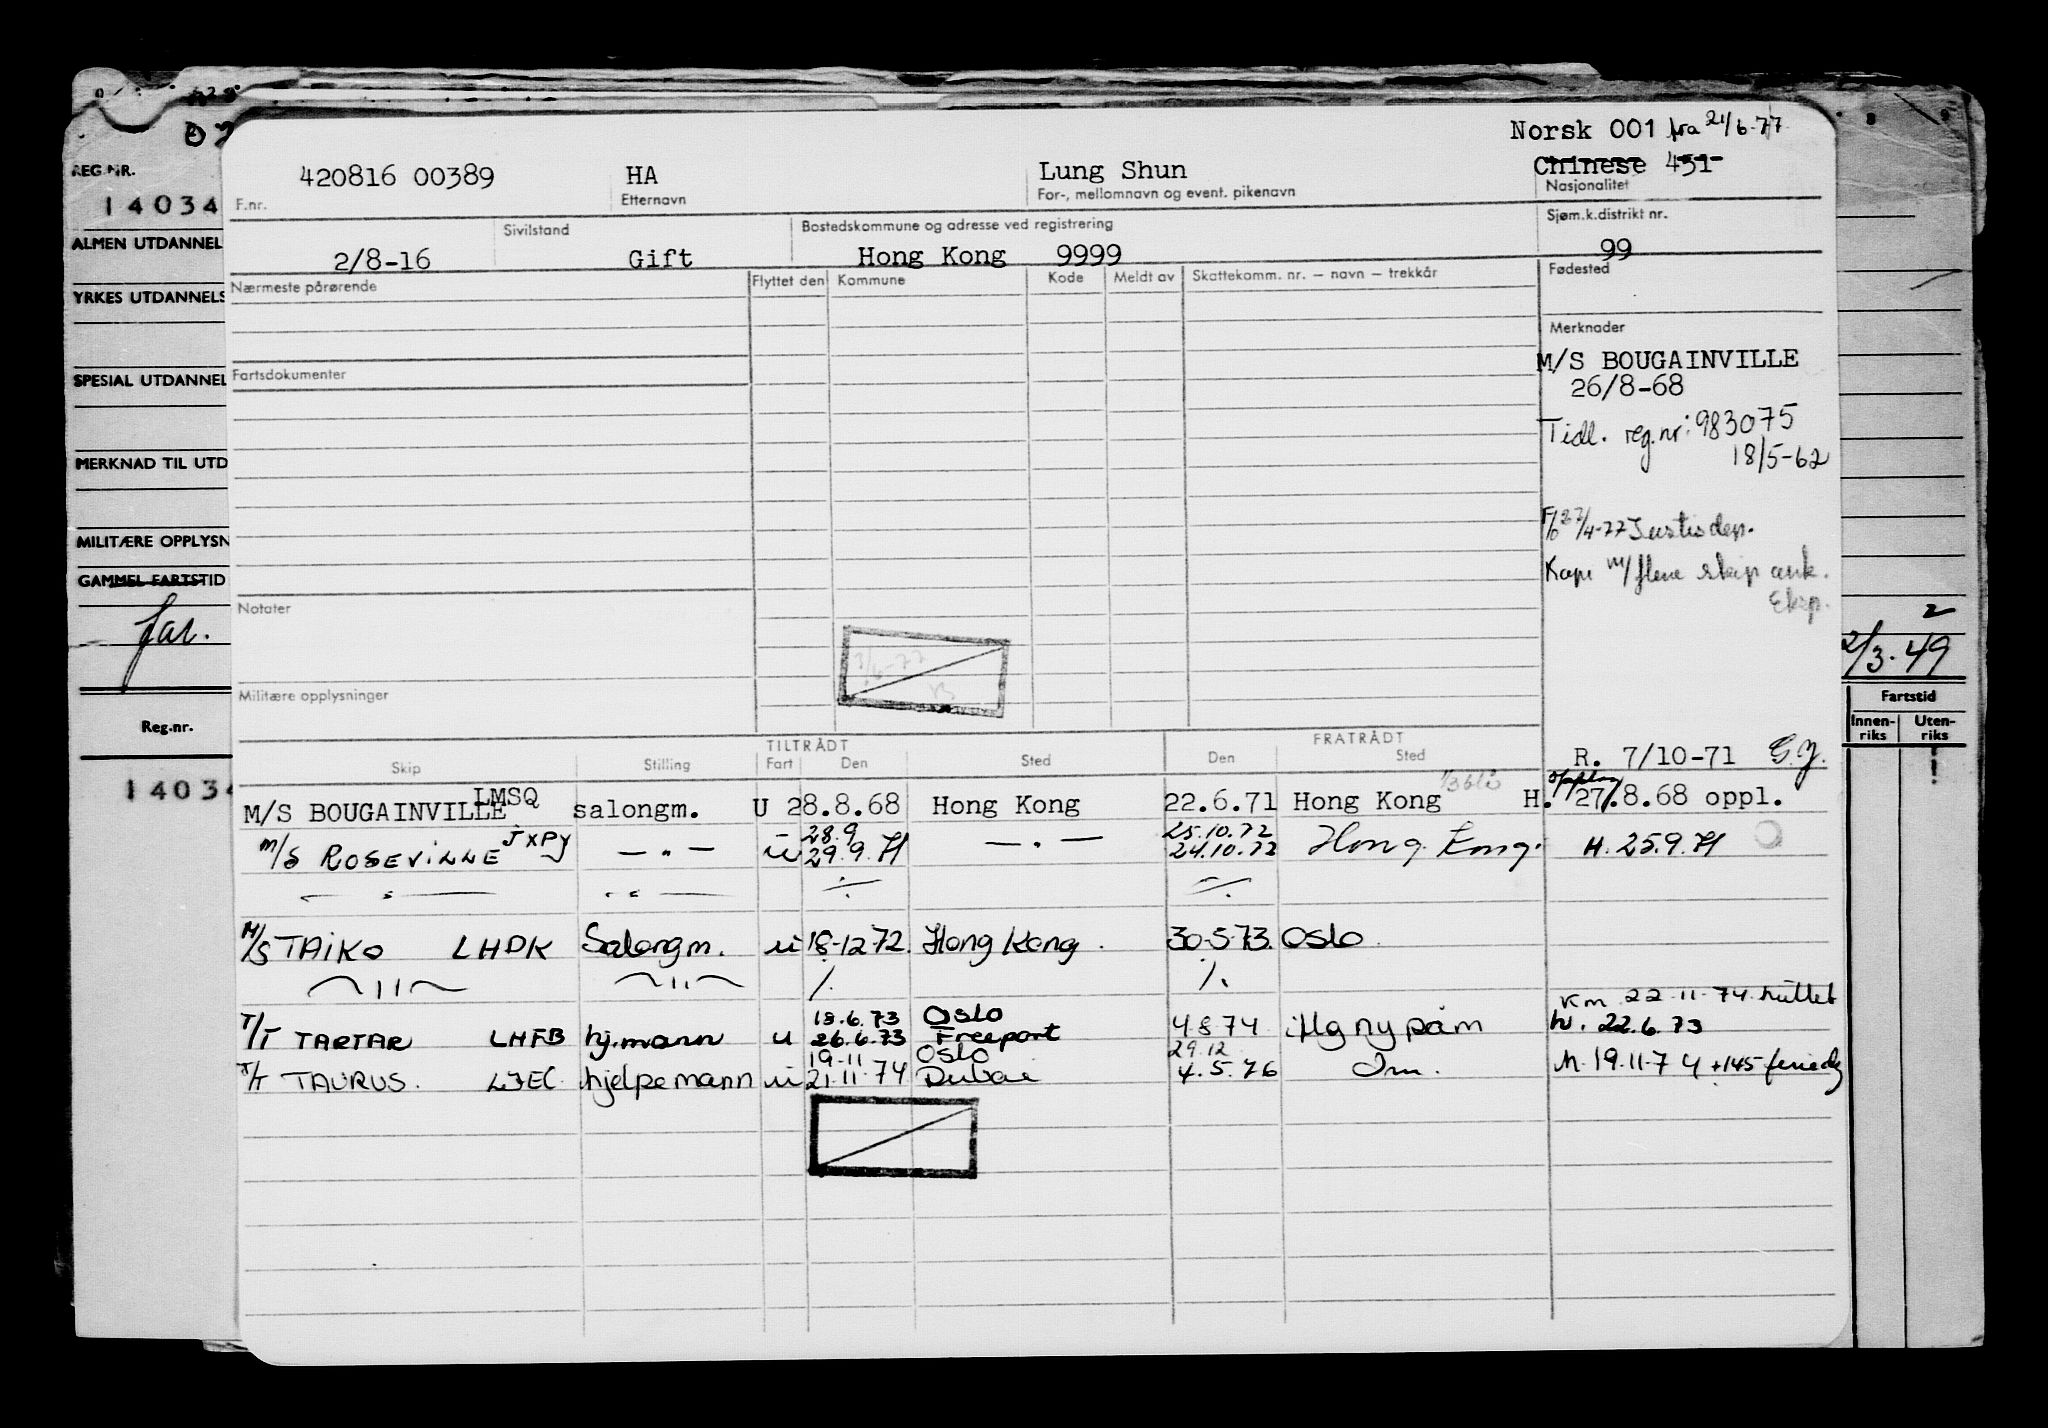 Norsk 001 fra 21/6-77
REG NR.
420816 00389 HA Lung Shun Chinese 451
F.nr. Etternavn For-, mellomnavn og event. pikenavn Nasjonalitet
14034
ALMEN UTDANNEL
Sivilstand Bostedskommune og adresse ved registrering Sjøm.k.distrikt nr.
2/8-16 Gift Hong Kong 9999 99
YRKES UTDANNELS
Nærmeste pårørende Flyttet den Kommune Kode Meldt av Skattekomm. nr. – navn – trekkår Fødested
Merknader
M/S BOUGAINVILLE
26/8-68
SPESIAL UTDANNEL
Fartsdokumenter
Tidl. reg.nr: 983075
18/5-62
MERKNAD TIL UTD
MILITÆRE OPPLYSN
27/4-77 Justisdep.
GAMMEL FARTSTID
Kopi m/flere skip ank.
Eksp.
Notater
2
2/3.49
Militære opplysninger
Fartstid
Innen-riks Uten-riks
Reg.nr.
14034
TILTRÅDT FRATRÅDT
Skip Stilling Fart Den Sted Den Sted
R. 7/10-71 G.J.
M/S BOUGAINVILLE LMSQ salongm. U 28.8.68 Hong Kong 22.6.71 Hong Kong H. 27.8.68 oppl.
28.9 25.10.72
M/S ROSEVILLE JXPY — " — u 29.9.71 — " — 24.10.72 Hong Kong. H. 25.9.71
— " — — " — ./. ./.
M/S TAIKO LHDK Salongm. u 18.12.72 Hong Kong. 30.5.73. Oslo.
— " — — " — ./. ./.
22.11.74
18.6.73 Oslo
T/T TARTAR LHFB hj.mann u 26.6.73 Freeport 4.8.74 H. 22.6.73
19.11 Oslo 29.12
T/T TAURUS. LJEC hjelpemann u 21.11.74 Dubai 4.5.76 M. 19.11.74 +145 feriedg